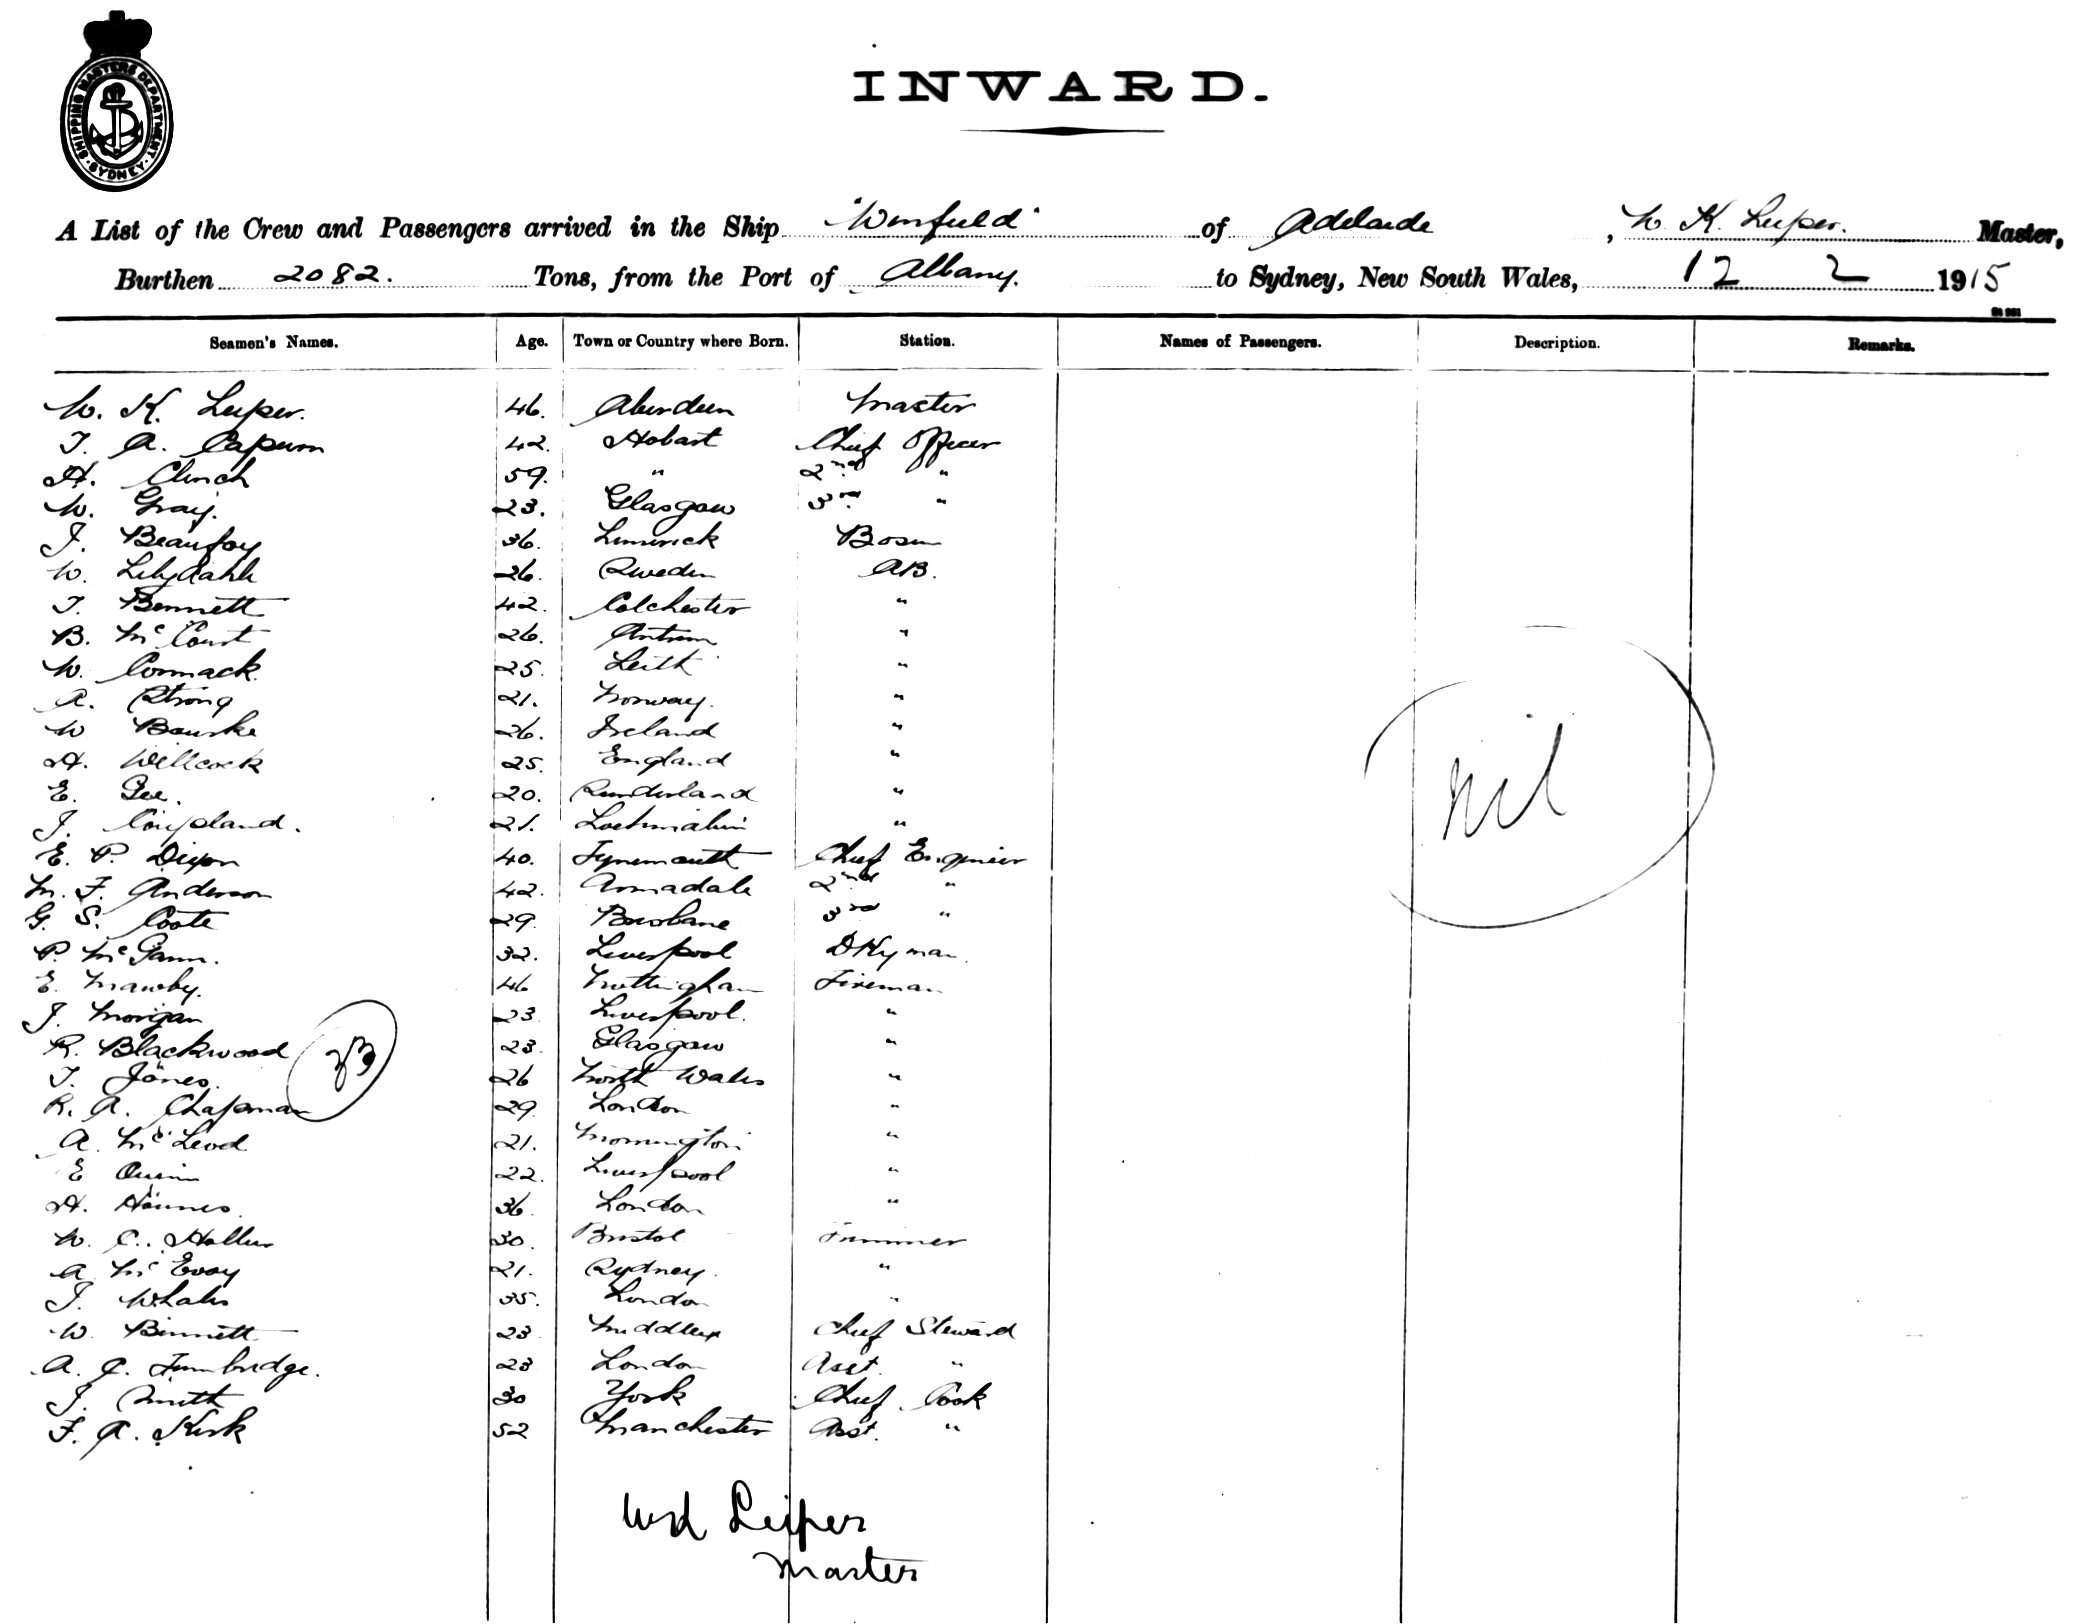 SHIPPING MASTERS DEPARTMENT · SYDNEY ·
INWARD.
A List of the Crew and Passengers arrived in the Ship "Winfield" of Adelaide, W. K. Leiper. Master,
Burthen 2082. Tons, from the Port of Albany. to Sydney, New South Wales, 12 2 1915
Seamen's Names. Age. Town or Country where Born. Station. Names of Passengers. Description. Remarks.
W. K. Leiper. 46. Aberdeen Master
T. A. Capurn 42. Hobart Chief Officer
H. Clinch 59. " 2nd "
W. Gray. 23. Glasgow 3rd "
J. Beaufoy 36. Limerick Bosun
W. Lilydahle 26. Sweden AB.
T. Bennett 42. Colchester "
B. McCourt 26. Antrim "
W. Cormack. 25. Leith "
A. Strong 21. Norway. "
W Bourke 26. Ireland "
H. Willcock 25. England "
E. Gee. 20. Sunderland "
J. Coupland. 21. "
E. P. Dixon 40. Tynemouth Chief Engineer
M. F. Anderson 42. Armadale 2nd "
G. S. Coote 29. Brisbane 3rd "
P. McGann. 32. Liverpool DKyman.
E. Mawby. 46 Nottingham Fireman
J. Morgan 23 Liverpool. "
R. Blackwood 23. Glasgow "
33
T. Jones. 26 North Wales "
R. A. Chapman 29. London "
A. McLeod 21. Mornington "
E Quinn 22. Liverpool "
H. Hannes. 36. London "
W. C. Hollier 30. Bristol Trimmer
A. McEvoy 21. Sydney. "
J. Whales 35. London "
W. Bennett 23 Middlesex Chief Steward
A. C. Tunbridge. 23 London Asst. "
J. Smith 30 York Chief Cook
F. A. Kirk 52 Manchester Asst. "
nil
WK Leiper
Master